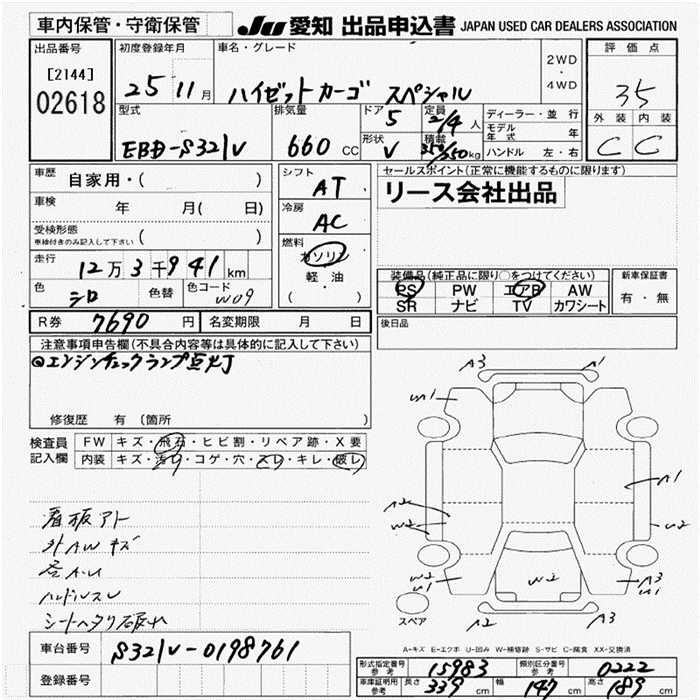 車内保管・守衛保管
JU 愛知 出品申込書 JAPAN USED CAR DEALERS ASSOCIATION
出品番号
[2144]
02618
初度登録年月
25 11月
車名・グレード
ハイゼットカーゴ スペシャル
2WD
・
4WD
評価点
35
外装 内装
C C
型式
EBD-S321V
排気量
660 cc
ドア
5
形状
V
定員
2/4人
積載
350/350kg
ディーラー・並行
モデル年式 年
ハンドル 左・右
車歴 自家用・( )
車検 年 月( 日)
受検形態
車検付きのみ記入して下さい ( )
走行 12万3千941km
色 シロ 色替 色コード W09
シフト
AT
冷房
AC
燃料
ガソリン
軽・油
( )
セールスポイント(正常に機能するものに限ります)
リース会社出品
装備品(純正品に限り○をつけてください)
PS PW エアB AW
SR ナビ TV カワシート
新車保証書
有・無
後日品
R券 7690円 名変期限 月 日
注意事項申告欄(不具合内容等は具体的に記入して下さい)
エンジンチェックランプ点灯
修復歴 有 (箇所 )
検査員記入欄
FW キズ・飛石・ヒビ割・リペア跡・X要
内装 キズ・汚れ・コゲ・穴・スレ・キレ・破レ
看板アト
外AWキズ
各A.U
ハンドルスレ
シートヘタリ破れ
A3 A1
W1
A2
W2
A1
U2
W2
W1
W2
A3
W1
A2 A3
スペア
A-キズ E-エクボ U-凹み W-補修跡 S-サビ C-腐食 XX-交換済
車台番号 S321V-0198761
登録番号
形式指定番号 参考 15983 類別区分番号 参考 0222
車庫証明用 参考 長さ 339cm 幅 147cm 高さ 189cm